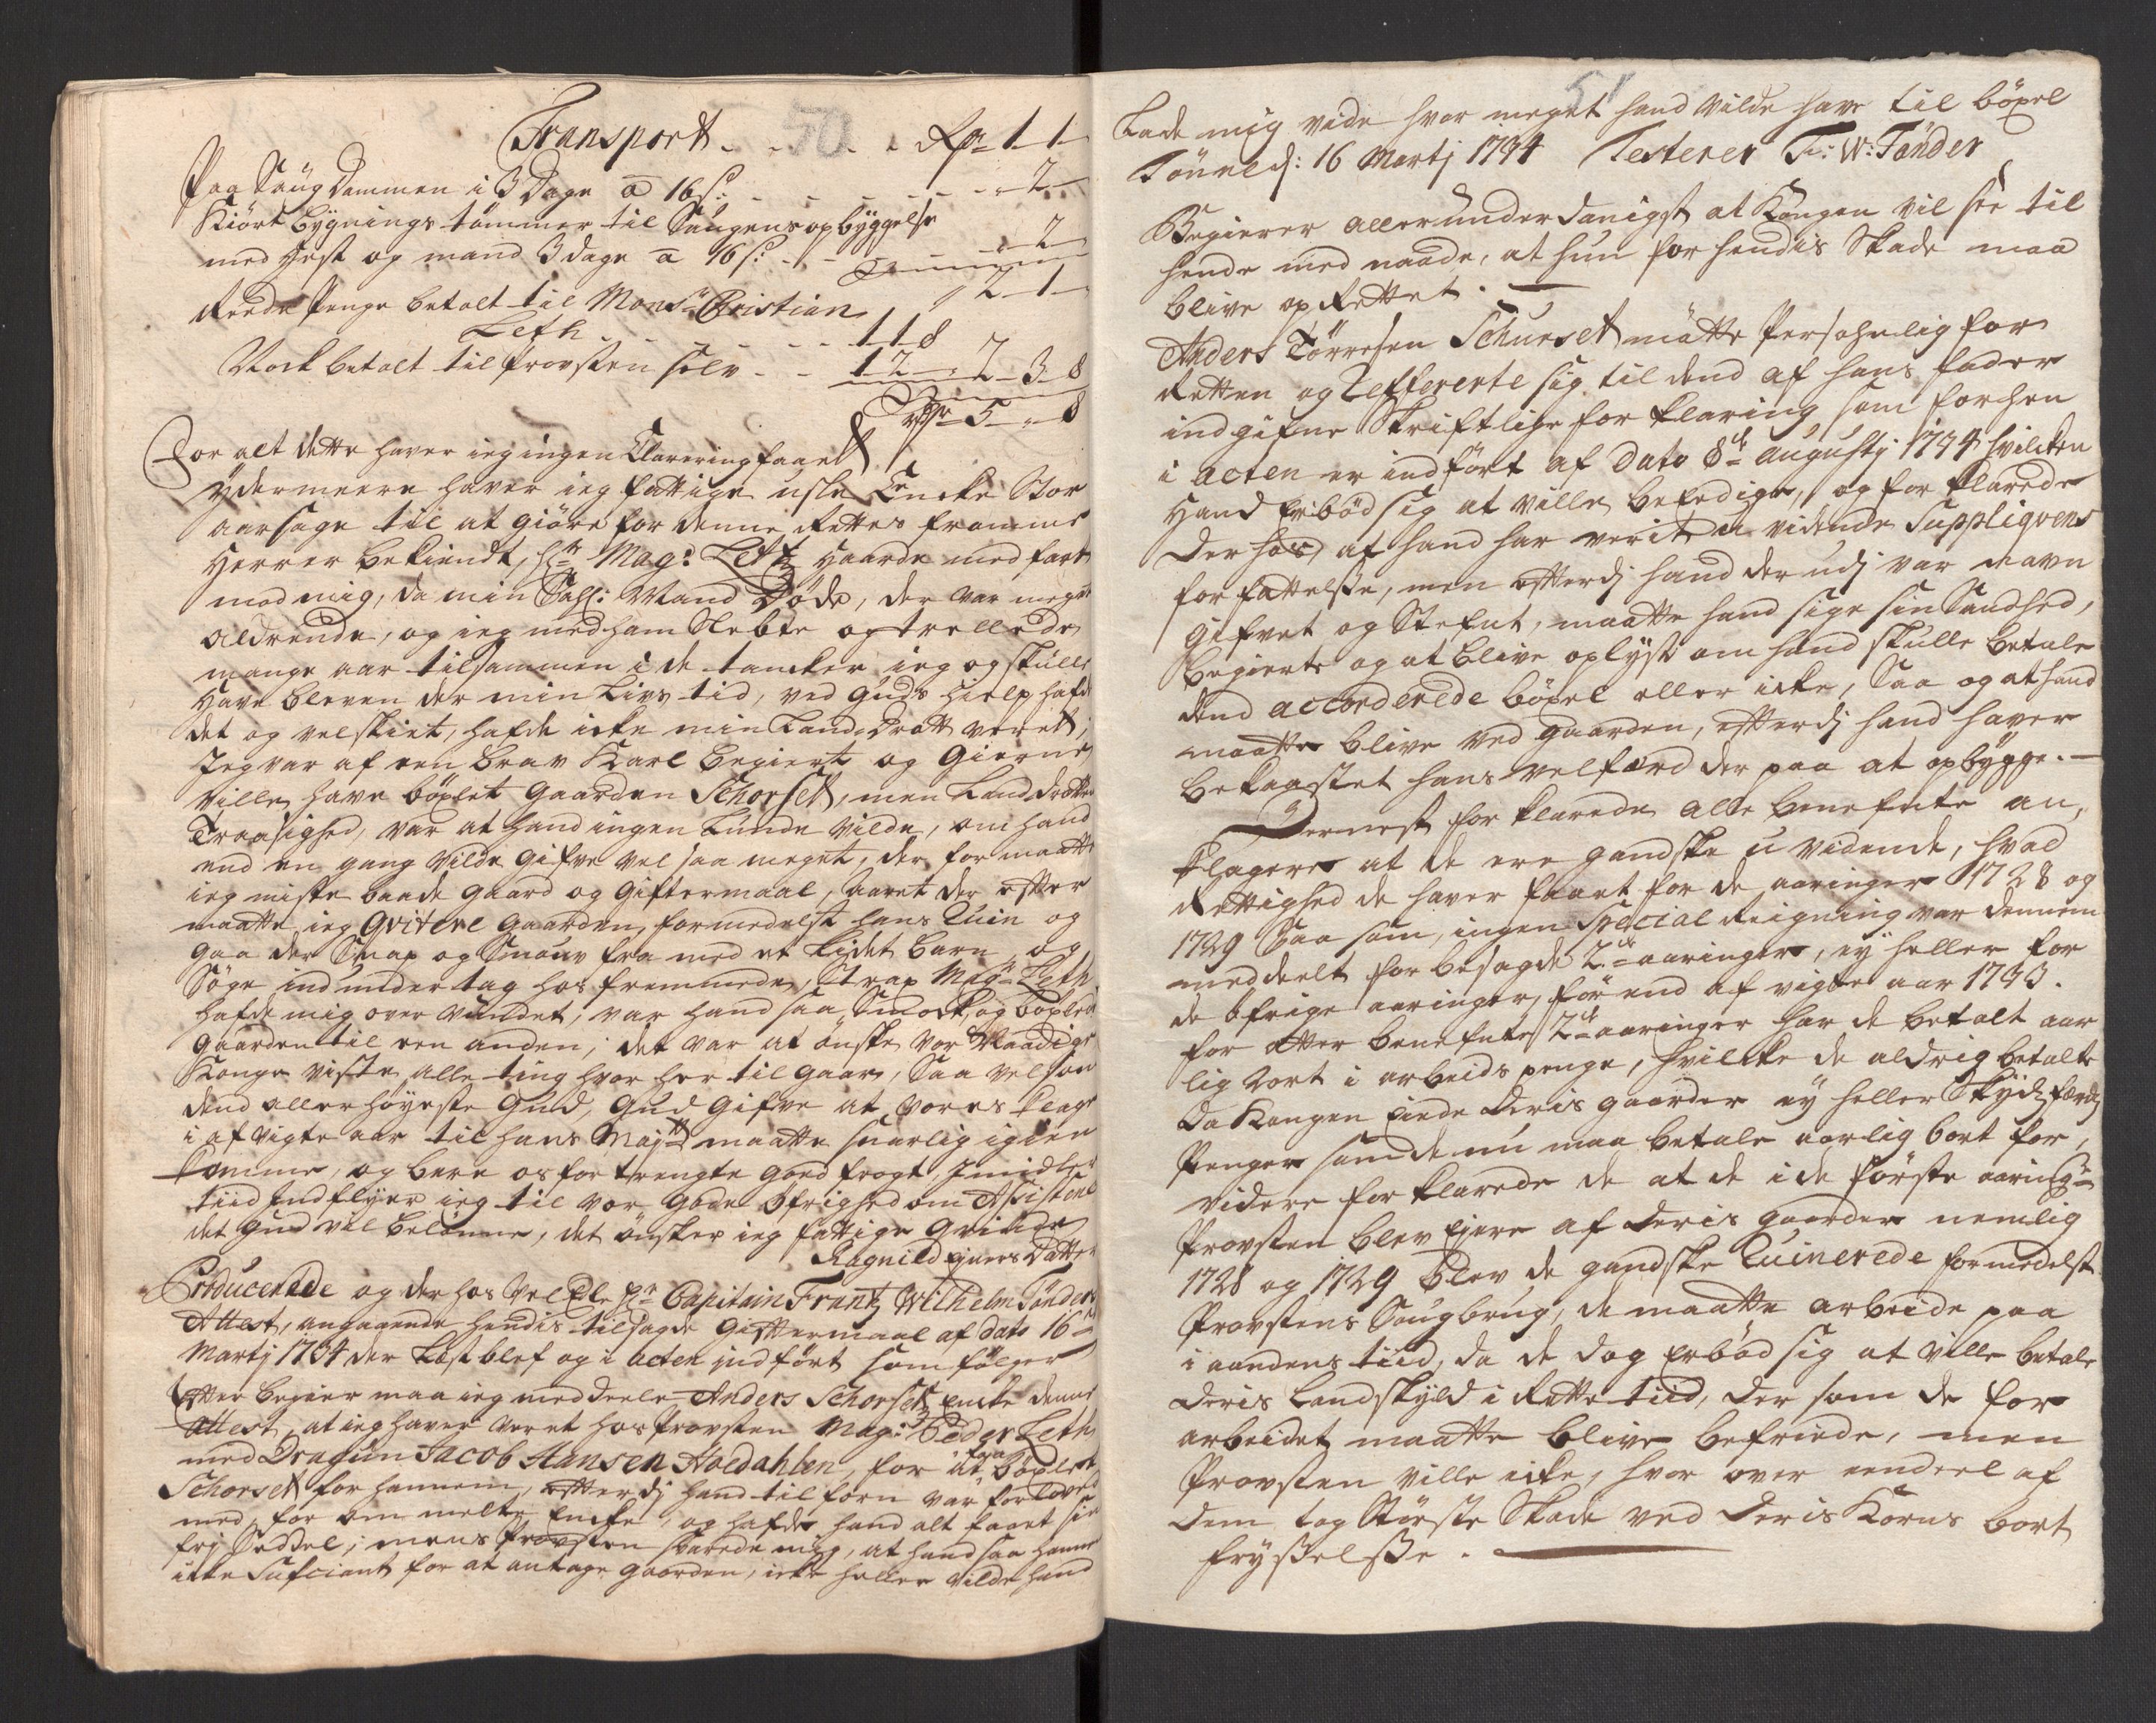 Transport - - 50 - - Rdr 1-1-
Paa Saug Dammen i 3 Dage a 16 s: - - - - - - - 2 -
Kiört bygnings tömmer til Saugens opbyggelse
med Hest og mand 3 dage a 16 s: - - - - 2 -
2-1-
Reede Penge betalt til Monsr Christian
Leth - - - - - - 1-1-8
Nock betalt til Provsten selv - - 1-2- - 2-3-8
Rdr 5 - „ - 8
For alt dette haver ieg ingen Clarering faaet
Ydermeere haver ieg fattige usle Encke Stor
aarsage til at giöre for denne Rettes fromme
Herrer bekiendt, Hr Mag: Letz haarde medfart
mod mig, da min Sahl: Mand Döde, der var meget
aldrende, og ieg med ham Slebte og trellede
mange aar tilsammen i de tancker ieg og skulle
have bleven der min Livs tid, ved Guds hielp hafde
det og vel skeet, hafde icke min Land Drott veret;
Jeg var af een brav Karl begiert og gierne
ville have böxlet gaarden Schorset, men Land drottens
Traasighed, var at hand ingen Lunde vilde, om hand
end en gang vilde gifve vel saa meget, der for maatte
ieg miste baade gaard og giftermaal, Aaret der efter
maatte ieg Qvitere gaarden, formedelst hans Ruin og
gaa der Knap og Snauv fra med et Lidet barn, og
Söge ind under tag hos fremmede, Strax Magr Leth
hafde mig over vundet, var hand saa Snock og böxlede
gaarden til een anden; det var at önske vor Naadige
Konge viste alle ting hvor her til gaar, Saa vel som
dend allerhöyeste Gud, Gud gifve at vores klage
i afvigte aar til hans Maytt maatte snarlig igien
komme, og bere os fortrengte goed frogt, Imidler
tiid Indflyer ieg til vor gode öfrighed om Assistence
det gud vel belönne, det önsker ieg fattige Qvinde
Ragnild Ejners Datter
Producerede og der hos Vel Edle Hr Capitain Frantz Wilhelm Tönders
Attest, angaaende hendis tilsagde giftermaal af dato 16de
Martj 1734 der Læst blef og i acten indfört som fölger
Efter begier maa ieg meddeele Anders Schorsets Encke denne
Attest, at ieg haver veret hos Provsten Magr: Peder Leth
med Dragun Jacob Hansen Hoedahlen, for at faa Böxlet
Schorset for hannem, efterdj hand tilforn var forlovet
med for om melte Encke, og hafde hand alt faaet sin
frj Seddel; mens Provsten svarede mig, at hand saa hannem
icke Sufciant for at antage gaarden, icke heller vilde hand
51
Lade mig vide hvor meget hand vilde have til böxel
Tönnes d: 16 Martj 1734 Testerer Fr: W: Tönder
Begierer allerunderdanigst at Kongen vil see til
hende med naade, at hun for hendis Skade maa
blive oprettet. —
Anders Törresen Schurset mötte Persohnlig for
Retten og Refererte sig til dend af hans fader
indgifne Skriftlige forklaring som forhen
i acten er indfört af dato 8de augustj 1734 hvilcken
Hand Erböd sig at ville beEedige, og forklarede
der hos, at hand har verit u-vidende Suppliqvens
forfattelse, men efterdj hand der udj var navn
gifvet og Stefnt, maatte hand sige sin Sandhed,
begierte og at blive oplyst om hand skulle betale
dend accorderede böxel eller icke, Saa og at hand
maatte blive ved gaarden, efterdj hand haver
bekaastet hans velfærd der paa at opbygge. —
Dernest forklarede alle benefnte an,
klagere at de ere gandske u vidende, hvad
Rettighed de haver faaet for de aaringer 1728 og
1729 Saa som ingen Special Reigning var dennem
meddeelt for besagde 2de aaringer, ey heller for
de öfrige aaringer, förend af vigte aar 1733.
for atter benefnte 2de aaringer har de betalt aar
lig 2 ort i arbeids penge, hvilcke de aldrig betalte
da Kongen Eiede deris gaarder ey heller Skydsfærds
Penger som de nu maa betale aarlig 6 ort for,
videre forklarede de at de i de förste aaringer
Provsten blev Ejere af deris gaarder nemlig
1728 og 1729 blev de gandske Ruinerede formedelst
Provstens Saugbrug, de maatte arbeide paa
i aandens tiid, da de dog Erböd sig at ville betale
deris Landskyld i Rette tiid, der som de for
arbeidet maatte blive befriede, men
Provsten ville icke, hvor over eendeel af
dem tog Störste Skade ved deris Korns bort
frysselsse.